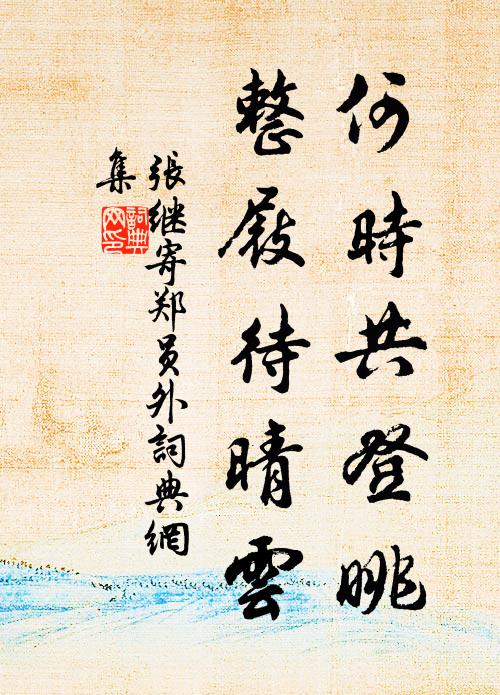 何時共登眺
整屐待晴雲
張继寄郑员外詞典網
集
詞典
网印